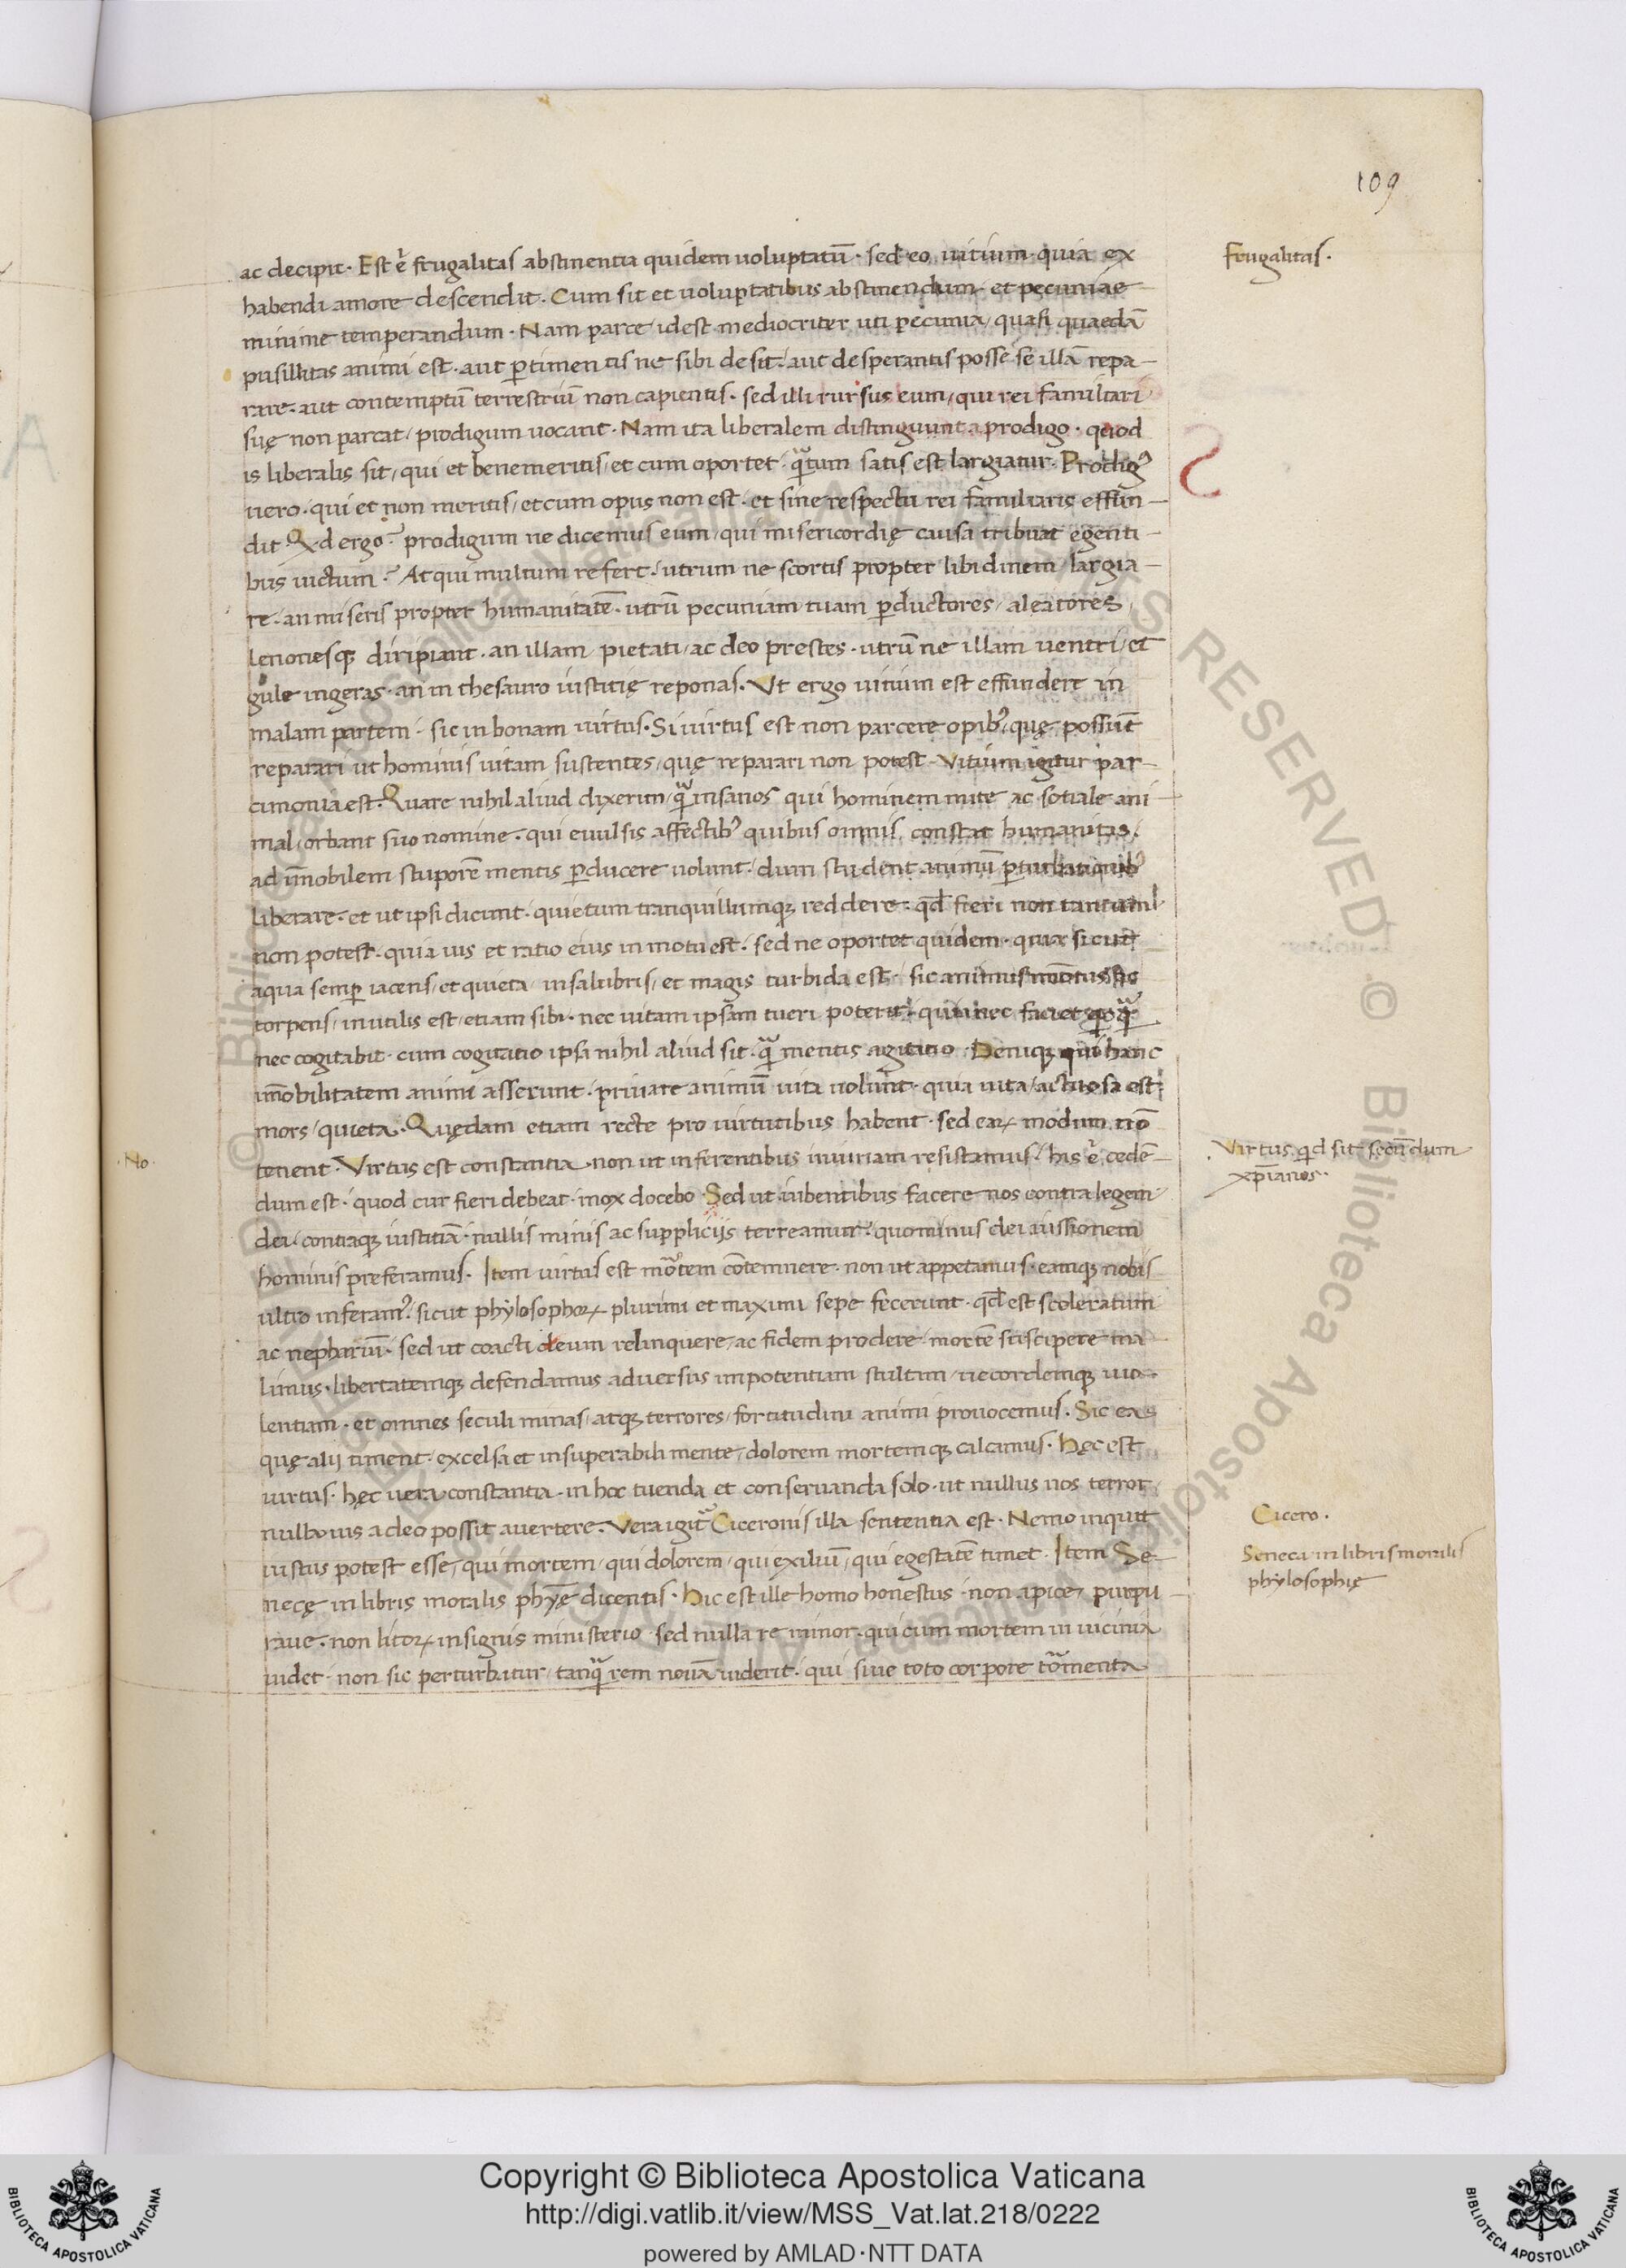 109
ac decipit. Est .n. frugalitas abstinentia quidem uoluptatũ. sed eo uitium. quia ex
Frugalitas.
habendi amore descendit. Cum sit et uoluptatibus abstinendum. et pecuniae
minime temperandum. Nam parce / idest mediocriter uti pecunia / quasi quaedã
pusillitas animi est. aut ꝑtimentis ne sibi desit. aut desperantis posse se illã repa-
rare. aut contemptũ terrestriũ non capientis. sed illi rursus eum / qui rei familiari
suę non parcat / prodigum uocant. Nam ita liberalem distinguunt a prodigo. quod
is liberalis sit / qui et benemeritis / et cum oportet. qᵃtum satis est largiatur. Prodigꝰ
uero. qui et non meritis / et cum opus non est. et sine respectu rei familiaris effun-
dit. Qd ergo? prodigum ne dicemus eum / qui misericordię causa tribuat egenti-
bus uictum? At qui multum refert. utrum ne scortis propter libidinem / largia-
re. an miseris propter humanitatẽ. utrũ pecuniam tuam ꝑductores / aleatores
lenonesqꝫ diripiant. an illam pietati / ac deo prestes. utrũ ne illam uentri / et
gule ingeras. an in thesauro iustitię reponas. Ut ergo uitium est effundere in
malam partem. sic in bonam uirtus. Si uirtus est non parcere opibꝰ / quę possunt
reparari ut hominis uitam sustentes / quę reparari non potest. Vitium igitur par-
cimonia est. Quare nihil aliud dixerim / qᵃ insanos qui hominem mite ac sotiale ani
mal / orbant suo nomine. qui euulsis affectibꝰ quibus omnis constat humanitas.
ad im̃obilem stuporẽ mentis ꝑducere uolunt. dum student animũ ꝑturbationibꝰ
liberare. et ut ipsi dicunt. quietum tranquillumqꝫ reddere. qd̃ fieri non tantum
non potest. quia uis et ratio eius in motu est. sed ne oportet quidem. quia sicut
aqua semꝑ iacens / et quieta / insalubris / et magis turbida est. sic animus
torpens / inutilis est / etiam sibi. nec uitam ipsam tueri poterit. quia nec faciet
nec cogitabit. cum cogitatio ipsa nihil aliud sit. qᵃ mentis agitatio. Deniqꝫ qui hanc
im̃obilitatem animi asserunt. priuare animũ uita uolunt. quia uita / actuosa est
mors / quieta. Quędam etiam recte pro uirtutibus habent. sed eaꝝ modum nõ
.No. tenent. Virtus est constantia. non ut inferentibus iniuriam resistamus. his .n. cedẽ-
.Virtus qd sit secũdum
xp̃ianos.
dum est. quod cur fieri debeat. mox docebo. Sed ut iubentibus facere nos contra legem
dei. contraqꝫ iustitiã. nullis minis ac suppliciis terreamur. quominus dei iussionem
hominis preferamus. Item uirtus est mortem cõtemnere. non ut appetamus. eamqꝫ nobis
ultro inferamꝰ. sicut phylosophoꝝ plurimi et maximi sepe fecerunt. qd̃ est sceleratum
ac nepharium. sed ut coacti deum relinquere / ac fidem prodere. mortẽ suscipere ma
limus. libertatemqꝫ defendamus aduersus impotentiam stultam / uecordemqꝫ uio-
lentiam. et omnes seculi minas / atqꝫ terrores / fortitudini animi prouocemus. Sic ea
quę alii timent. excelsa et insuperabili mente / dolorem mortemqꝫ calcamus. Hęc est
uirtus. hęc uera constantia. in hoc tuenda et conseruanda solo. ut nullus nos terror
nulla uis a deo possit auertere. Vera igitᵃ Ciceronis illa sententia est. Nemo inquit
Cicero.
iustus potest esse / qui mortem / qui dolorem / qui exiliũ / qui egestatẽ timet. Item Se-
Seneca in libris moralis
phylosophię
necę in libris moralis phyę̃ dicentis. Hic est ille homo honestus. non apice / purpu-
raue. non litoꝝ insignis ministerio. sed nulla re minor. qui cum mortem in uicinia
uidet. non sic perturbatur / tanqᵃ rem nouã uiderit. qui siue toto corpore tormenta
Copyright © Biblioteca Apostolica Vaticana
http://digi.vatlib.it/view/MSS_Vat.lat.218/0222
powered by AMLAD·NTT DATA
BIBLIOTECA APOSTOLICA VATICANA
BIBLIOTECA APOSTOLICA VATICANA